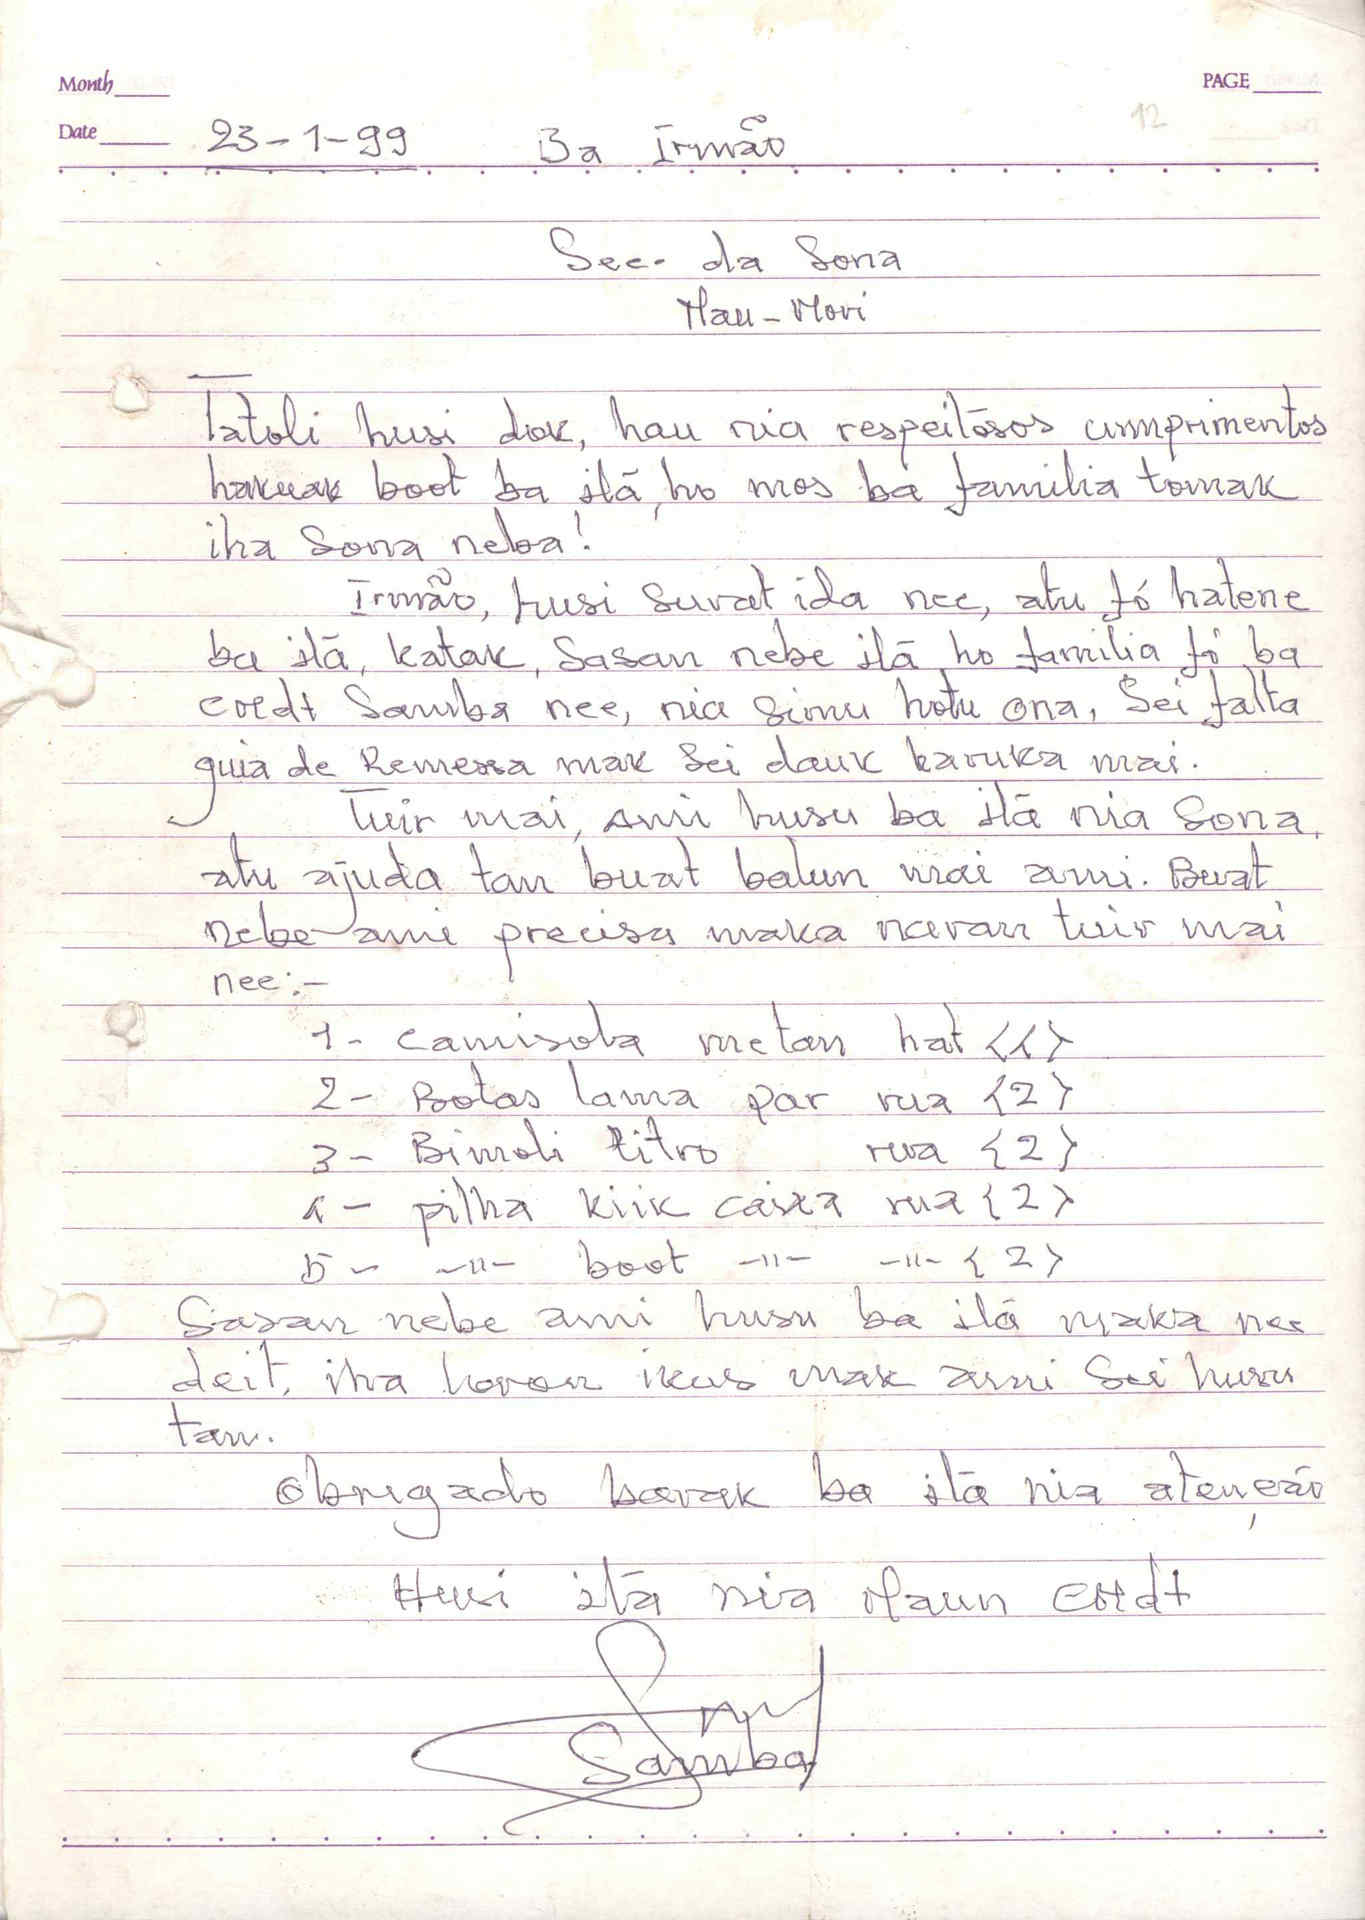 Month
PAGE
12
Date 23-1-99 Ba Irmão
Sec. da Sona
Mau-Mori
Tatoli husi dok, hau nia respeitósos cumprimentos
hakuak boot ba itā, ho mos ba familia tomak
iha Sona neba!
Irmão, husi surat ida nee, atu fó hatene
ba itā, katak, Sasan nebe itā ho familia fó ba
Samba nee, nia simu hotu ona, Sei falta
guia de Remessa mak sei dauk haruka mai.
Tuir mai, ami husu ba itā nia Sona,
atu ajuda tan buat balun mai ami. Buat
nebe ami precisa maka naran tuir mai
nee:-
1- Camisola metan hat <4>
2- Botas lama par rua {2}
3- Bimoli litro rua {2}
4- pilha kiik caixa rua {2}
5- -"- boot -"- -"- {2}
Sasan nebe ami husu ba itā maka nee
deit, iha loron ikus mak ami Sei husu
tan.
Obrigado barak ba itā nia atenção
Husi itā nia Maun
Samba